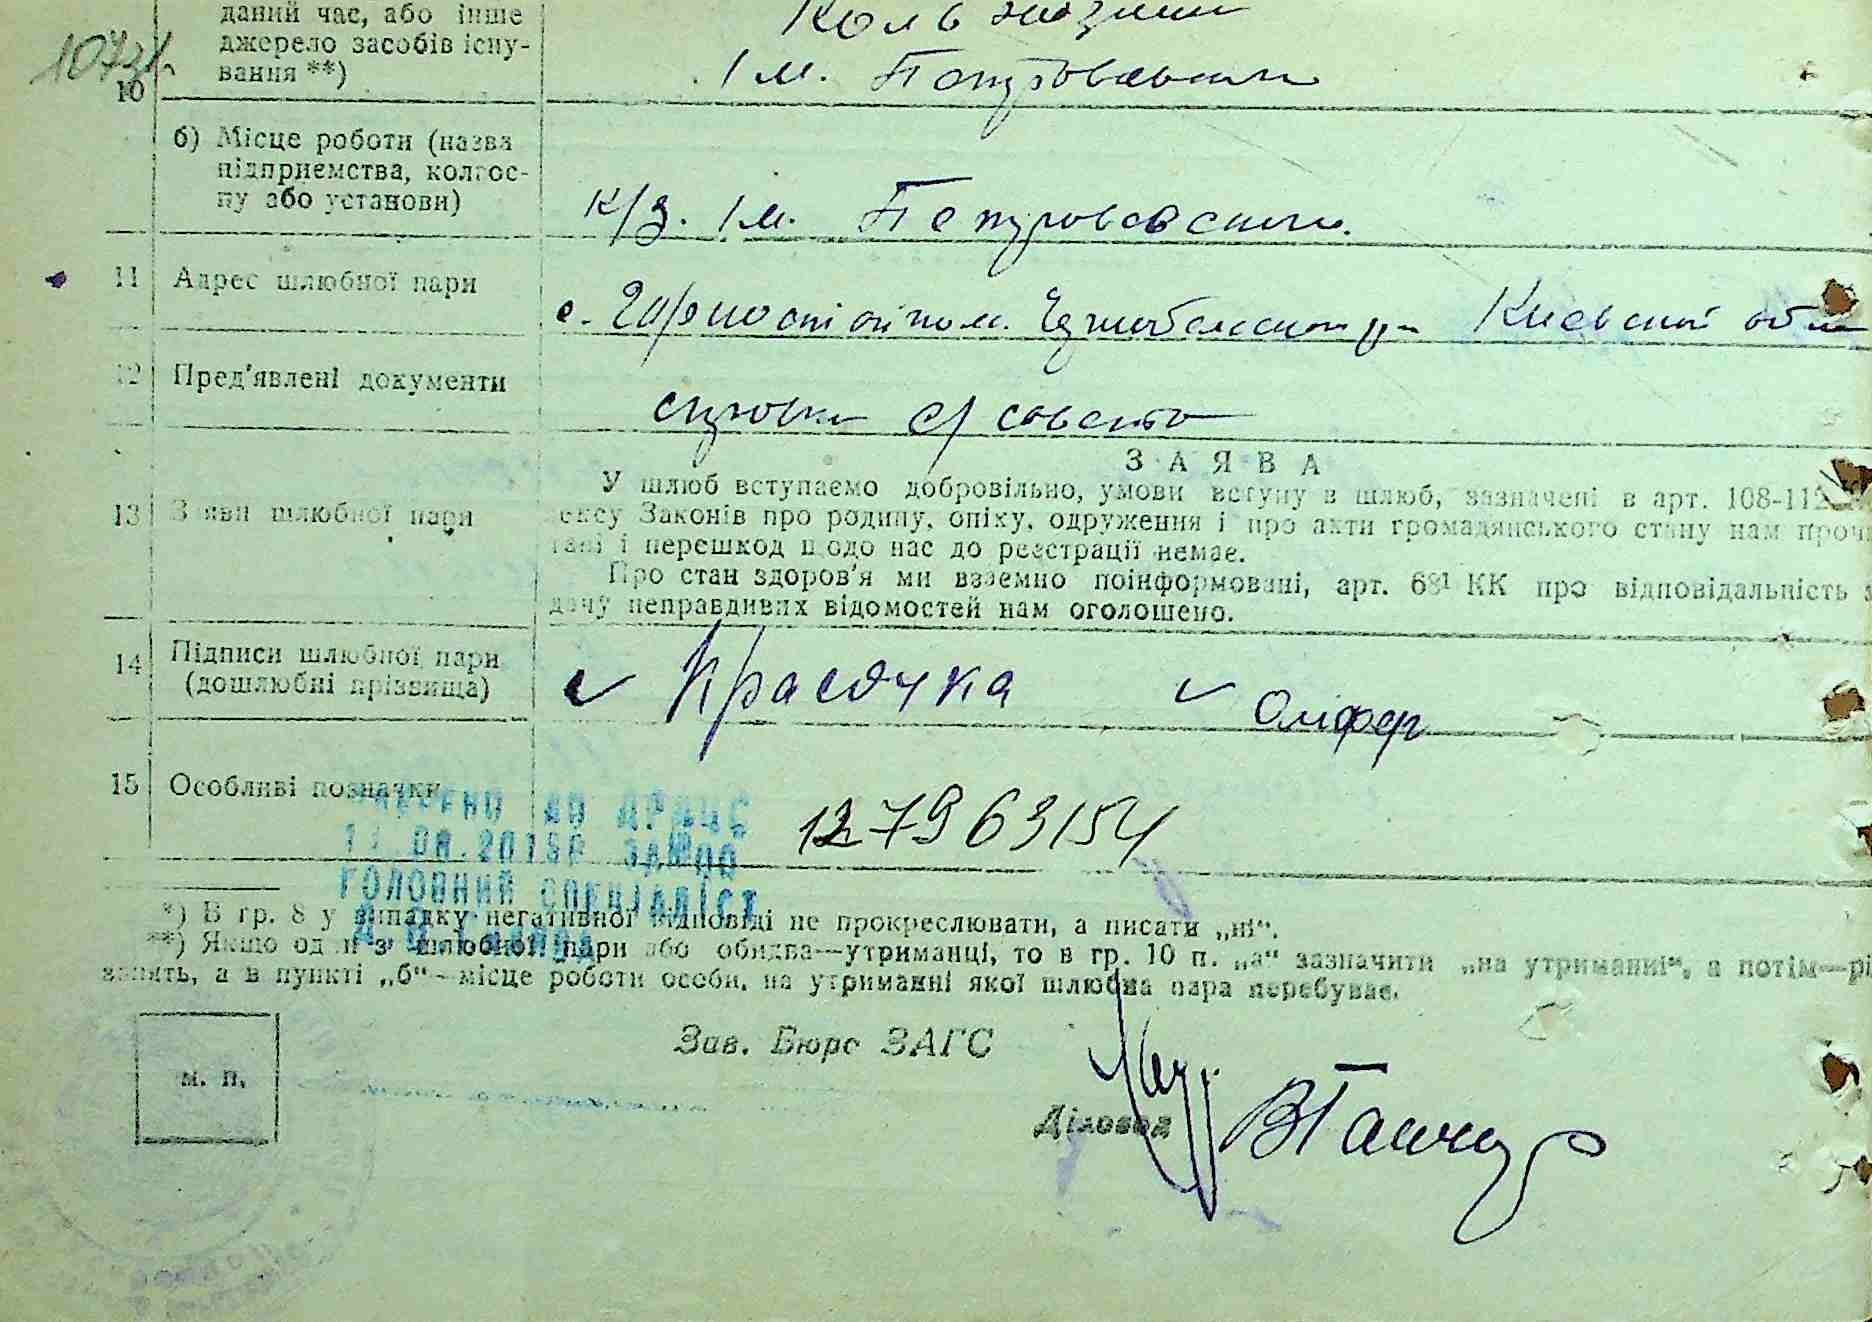 даний час, або інше
джерело засобів існу-
вання **)
10
ім. Петровського
б) Місце роботи (назва
підприємства, колгос-
пу або установи)
к/з. ім. Петровського.
11 Адрес шлюбної пари
с. Горностайпом. Чернобыльского р-н Киевской обл
12 Пред'явлені документи
справки с/совета
З А Я В А
13 Заяви шлюбної пари
У шлюб вступаємо добровільно, умови вступу в шлюб, зазначені в арт. 108-112
ексу Законів про родину, опіку, одруження і про акти громадянського стану нам проч
тані і перешкод щодо нас до реєстрації немає.
Про стан здоров'я ми взаємно поінформовані, арт. 68¹ КК про відповідальність з
дачу неправдивих відомостей нам оголошено.
14 Підписи шлюбної пари
(дошлюбні прізвища)
Красочка Оліфер
15 Особливі позначки
127963154
ДО ДРАЦС
ГОЛОВНИЙ СПЕЦІАЛІСТ
*) В гр. 8 у випадку негативної відповіді не прокреслювати, а писати „ні“.
**) Якщо один з шлюбної пари або обидва—утриманці, то в гр. 10 п. „а“ зазначити „на утриманні“, а потім—рі
занять, а в пункті „б“—місце роботи особи, на утриманні якої шлюбна пара перебуває.
Зав. Бюро ЗАГС
м. п.
Діловод